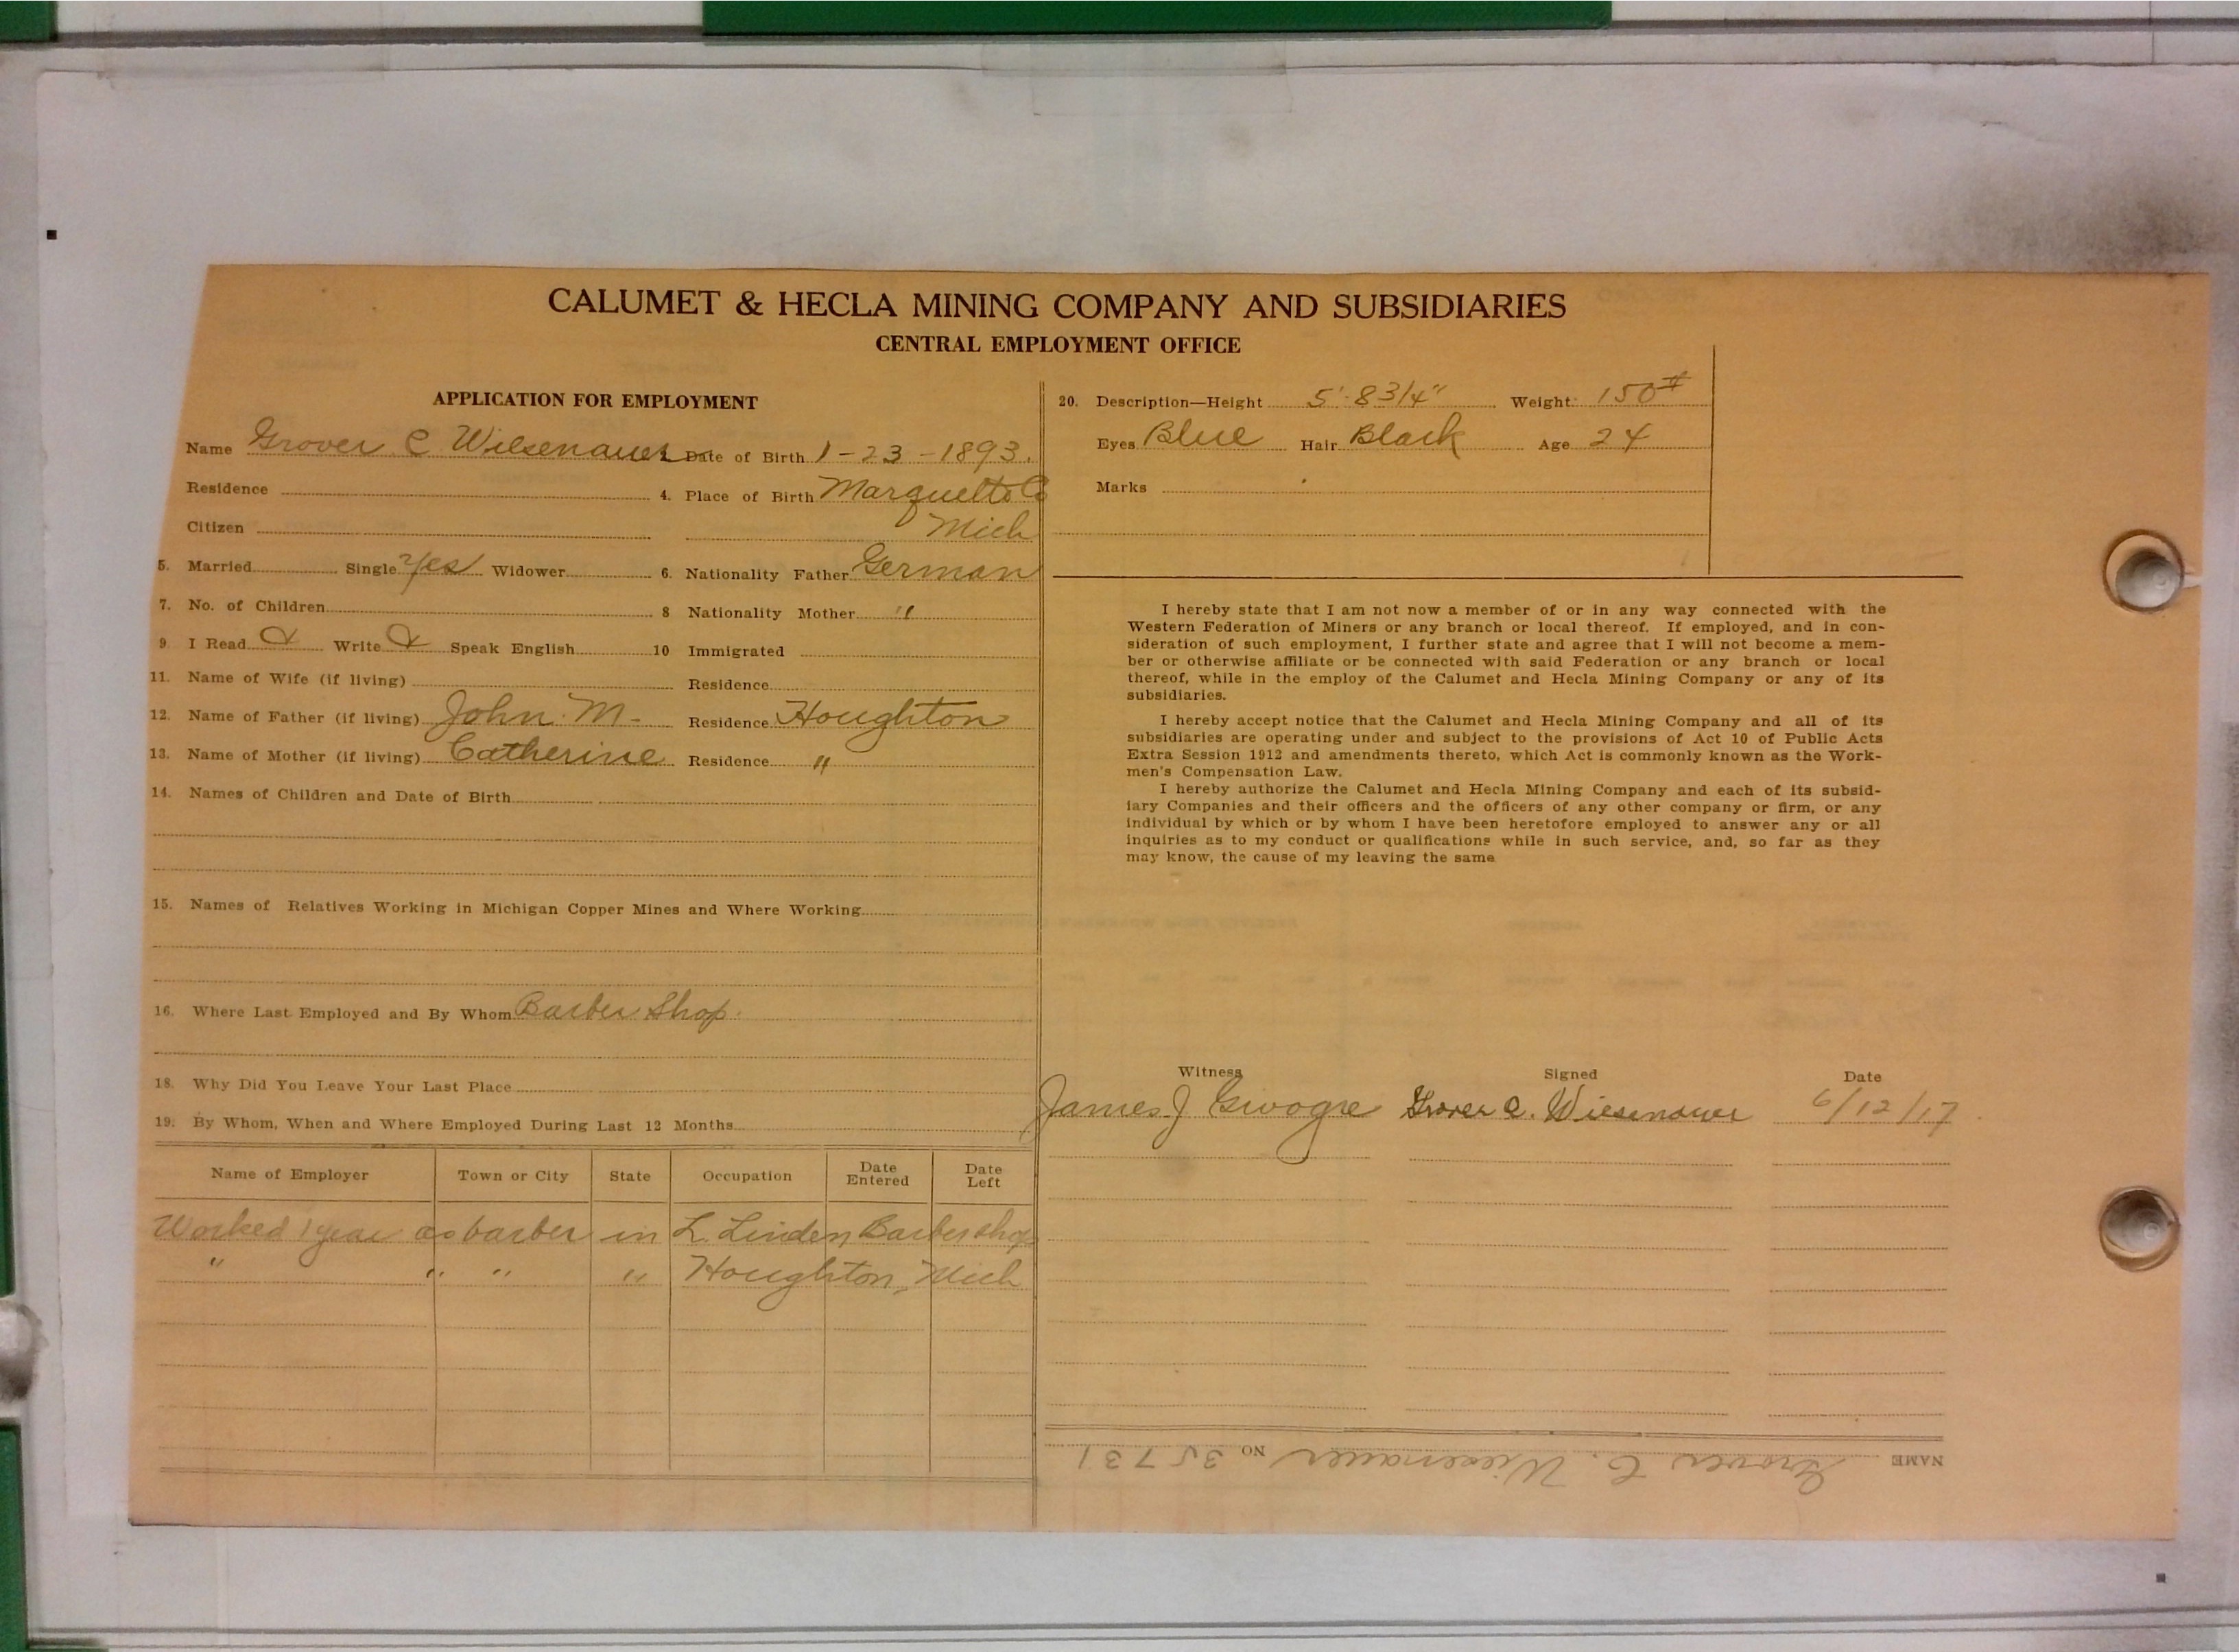 CALUMET & HECLA MINING COMPANY AND SUBSIDIARIES
CENTRAL EMPLOYMENT OFFICE
APPLICATION FOR EMPLOYMENT
Name Grover C Wilsenauer Date of Birth 1-23-1893.
Residence 4. Place of Birth Marquette Co
Citizen Mich
5. Married Single Yes Widower 6. Nationality Father German
7. No. of Children 8 Nationality Mother "
9. I Read & Write & Speak English 10 Immigrated
11. Name of Wife (if living) Residence
12. Name of Father (if living) John M- Residence Houghton
13. Name of Mother (if living) Catherine Residence "
14. Names of Children and Date of Birth
15. Names of Relatives Working in Michigan Copper Mines and Where Working
16. Where Last Employed and By Whom Barber Shop.
18. Why Did You Leave Your Last Place
19. By Whom, When and Where Employed During Last 12 Months
Name of Employer Town or City State Occupation Date Entered Date Left
Worked 1 year as barber in L. Linden Barber shop
" " " " Houghton, Mich
20. Description—Height 5' 8 3/4" Weight 150#
Eyes Blue Hair Black Age 24
Marks
I hereby state that I am not now a member of or in any way connected with the
Western Federation of Miners or any branch or local thereof. If employed, and in con-
sideration of such employment, I further state and agree that I will not become a mem-
ber or otherwise affiliate or be connected with said Federation or any branch or local
thereof, while in the employ of the Calumet and Hecla Mining Company or any of its
subsidiaries.
I hereby accept notice that the Calumet and Hecla Mining Company and all of its
subsidiaries are operating under and subject to the provisions of Act 10 of Public Acts
Extra Session 1912 and amendments thereto, which Act is commonly known as the Work-
men's Compensation Law.
I hereby authorize the Calumet and Hecla Mining Company and each of its subsid-
iary Companies and their officers and the officers of any other company or firm, or any
individual by which or by whom I have been heretofore employed to answer any or all
inquiries as to my conduct or qualifications while in such service, and, so far as they
may know, the cause of my leaving the same
Witness Signed Date
James J Grover C. Wiesenauer 6/12/17
NAME Grover C. Wiesenauer NO 35731